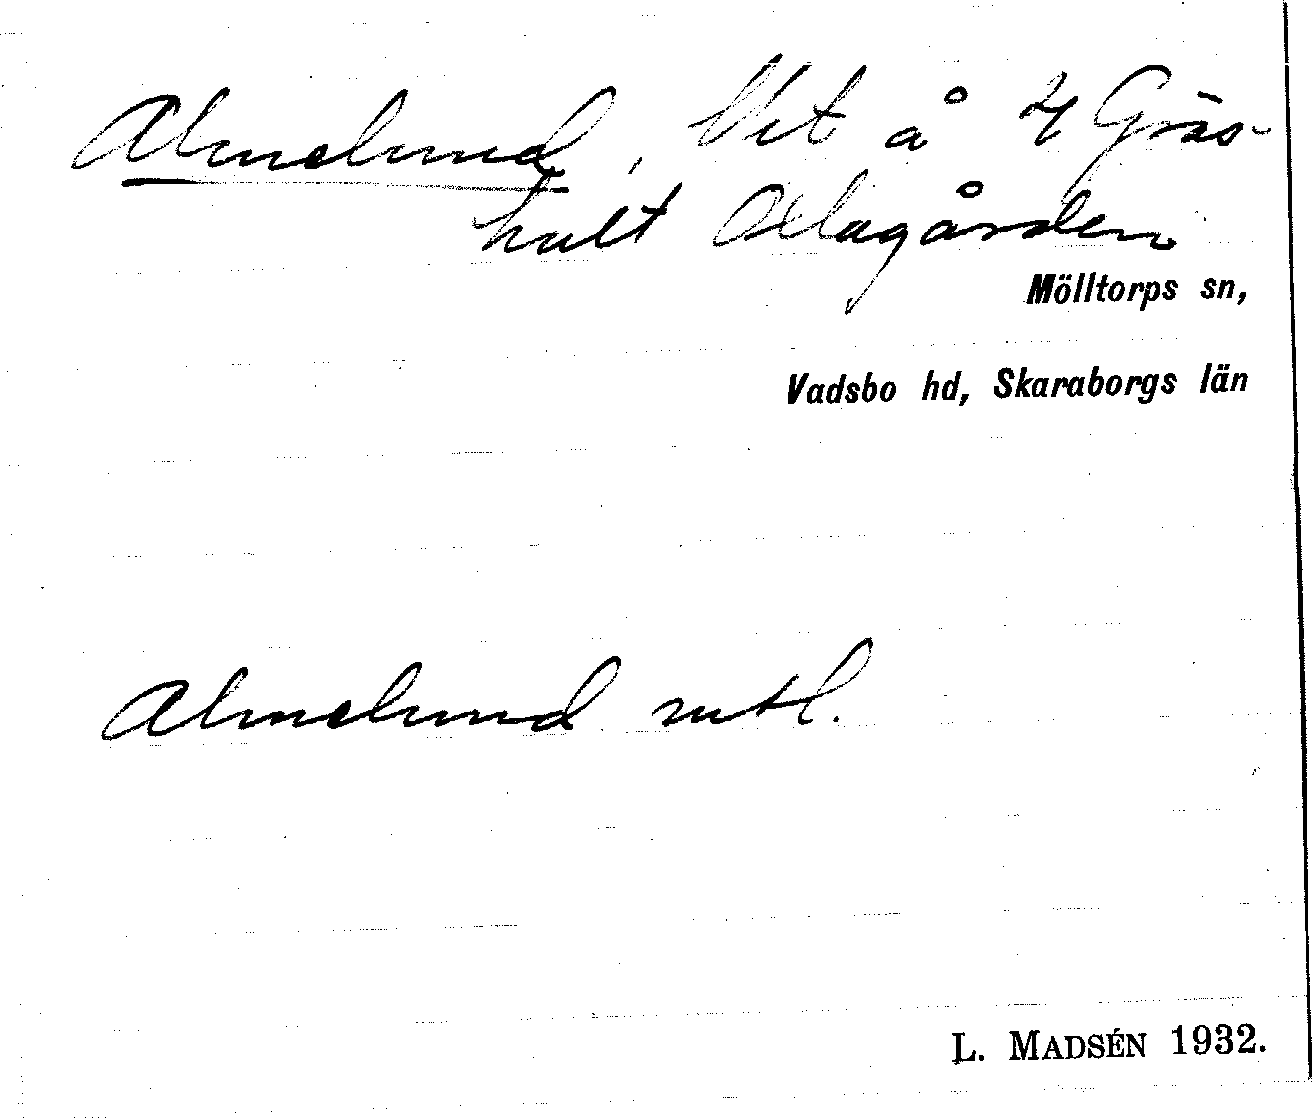 Almelund, Vet å 4 Gräs-
hult Olagården
Mölltorps sn,
Vadsbo hd, Skaraborgs län
Almelund mtl.
L. MADSÉN 1932.